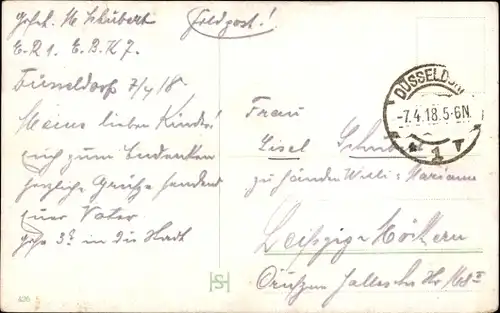 Gefrt. H. Schubert Feldpost!
E. R 1. E. B. K 7.
Düsseldorf 7/4 18
Meine lieben Kinder!
Euch zum Andenken
herzliche Grüße sendend
Euer Vater
in die Stadt
DÜSSELDORF
-7.4.18.5-6N.
1
Frau
Lisel Schubert
zu Händen Willi : Marianne
Leipzig-Möckern
Hallesche Str.
HS